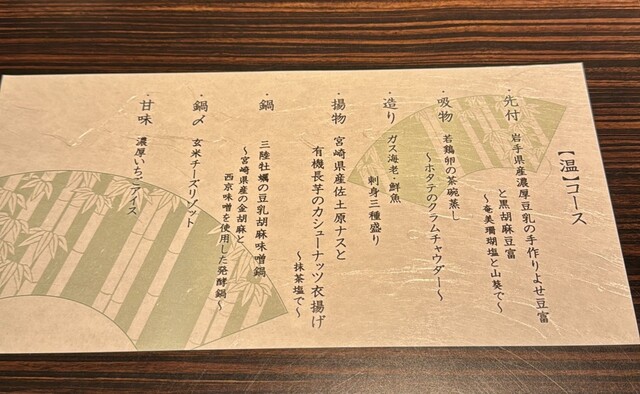 【温】コース
・先付 岩手県産濃厚豆乳の手作りよせ豆富
と黒胡麻豆富
〜奄美珊瑚塩と山葵で〜
・吸物 若鶏卵の茶碗蒸し
〜ホタテのクラムチャウダー〜
・造り ガス海老・鮮魚
刺身三種盛り
・揚物 宮崎県産佐土原ナスと
有機長芋のカシューナッツ衣揚げ
〜抹茶塩で〜
・鍋 三陸牡蠣の豆乳胡麻味噌鍋
〜宮崎県産の金胡麻と
西京味噌を使用した発酵鍋〜
・鍋〆 玄米チーズリゾット
・甘味 濃厚いちごアイス